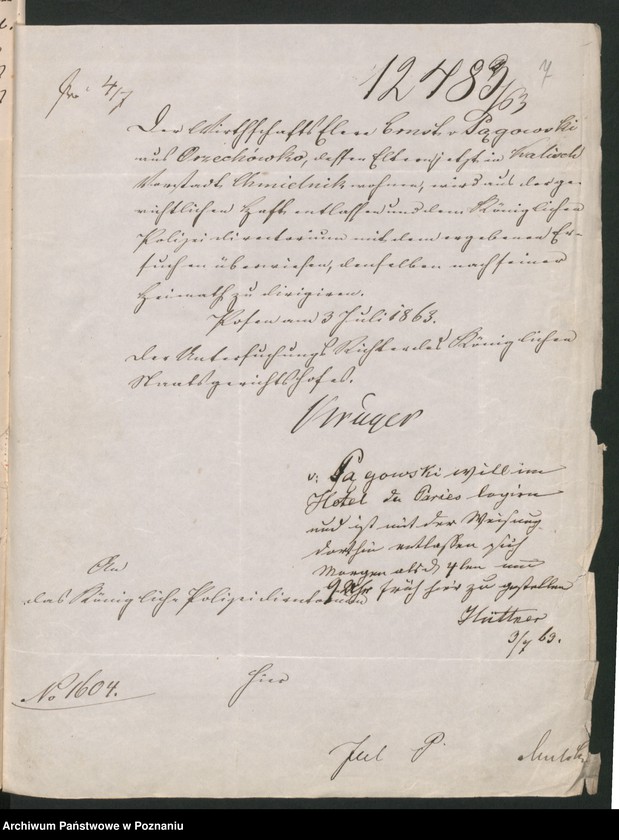 12483/63
7
pr 4/7
Der Wirthschafts Eleve Const. v. Pągowski
aus Orzechówko, dessen Eltern jetzt in Kalisch
Vorstadt Chmielnik wohnen, wird aus der ge-
richtlichen Haft entlassen und dem Königlichen
Polizeidirectorium mit dem ergebenen Er-
suchen überwiesen, denselben nach seiner
Heimath zu dirigiren.
Posen am 3 Juli 1863.
Der Untersuchungs Richter des Königlichen
Staatsgerichtshofes.
Krüger
v. Pągowski will im
Hotel de Paries logiren
und ist mit der Weisung
dorthin entlassen, sich
Morgen als d. 4ten um
9 Uhr früh hier zu gestellen
Hüttner
3/7 63.
An
das Königliche Polizeidirectorium
Hier
No 1604.
P.
Archiwum Państwowe w Poznaniu